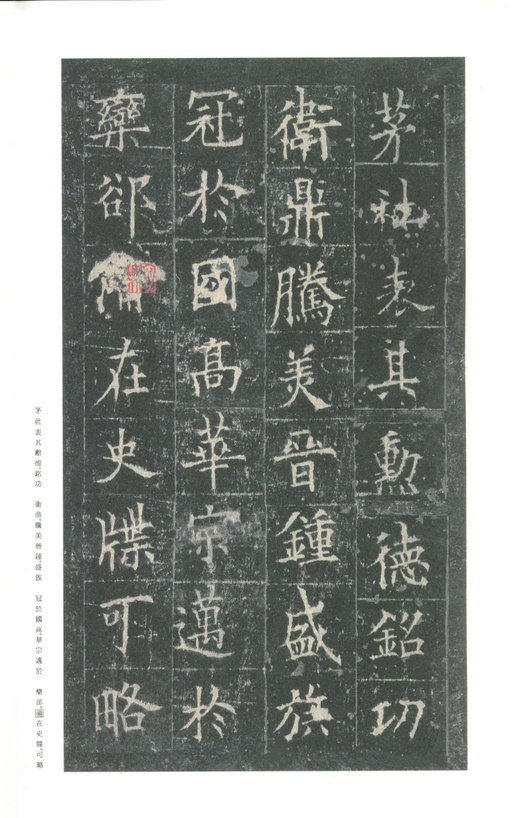 茅社表其勲德銘功
衛鼎騰美晉鍾盛族
冠於國高華宗邁於
欒郤備在史牒可略
茅社表其勲德銘功　衛鼎騰美晉鍾盛族　冠於國高華宗邁於　欒郤備在史牒可略